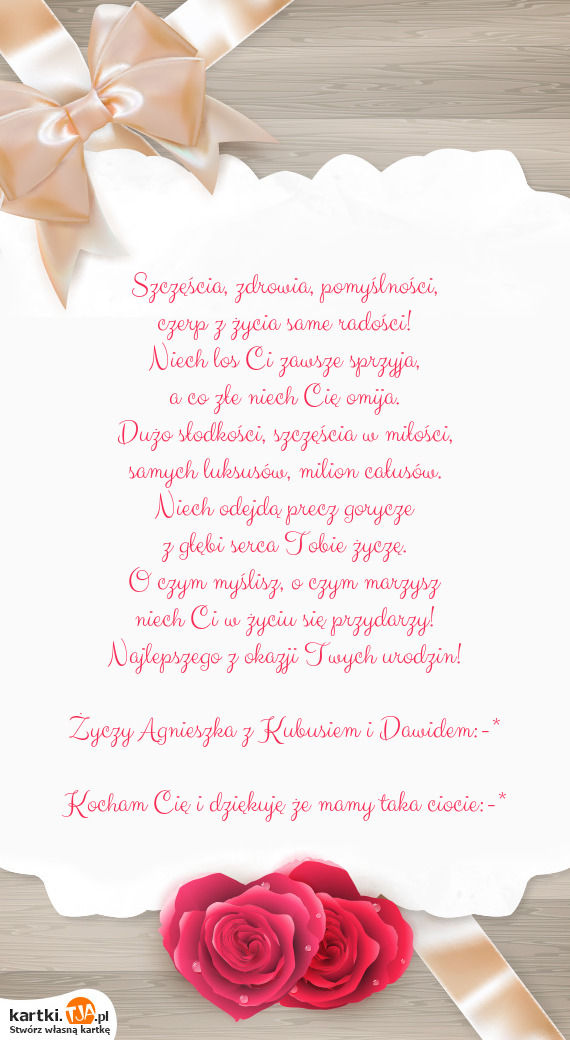 Szczęścia, zdrowia, pomyślności,
czerp z życia same radości!
Niech los Ci zawsze sprzyja,
a co złe niech Cię omija.
Dużo słodkości, szczęścia w miłości,
samych luksusów, milion całusów.
Niech odejdą precz gorycze
z głębi serca Tobie życzę.
O czym myślisz, o czym marzysz
niech Ci w życiu się przydarzy!
Najlepszego z okazji Twych urodzin!
Życzy Agnieszka z Kubusiem i Dawidem:-*
Kocham Cię i dziękuję że mamy taka ciocie:-*
kartki.TJA.pl
Stwórz własną kartkę